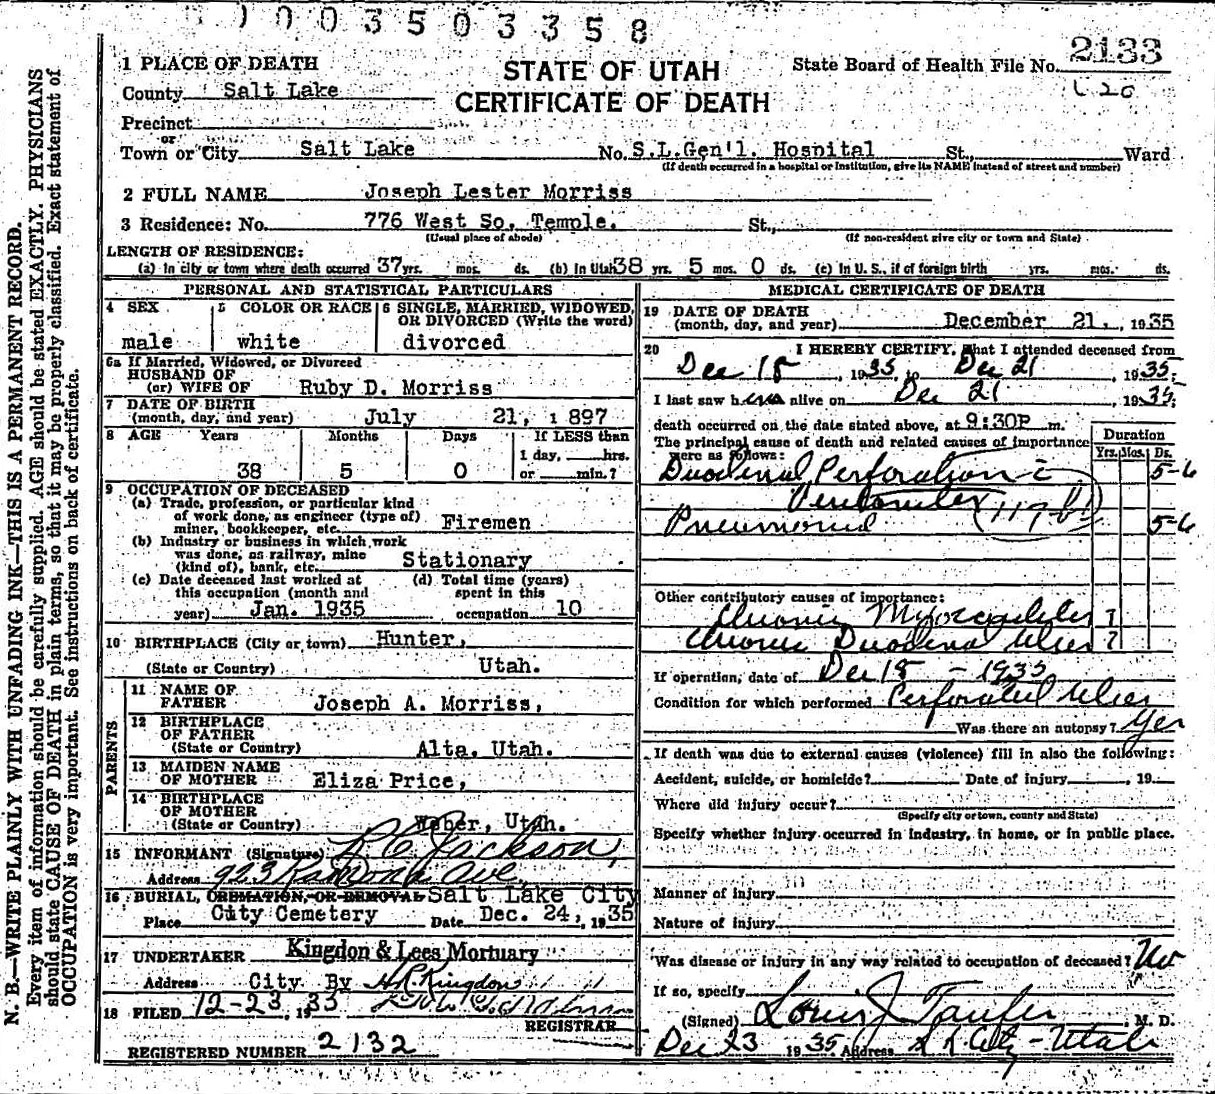 0003503358
2133
1 PLACE OF DEATH
STATE OF UTAH
State Board of Health File No.
County Salt Lake
CERTIFICATE OF DEATH
Precinct
or
Town or City Salt Lake No. S.L.Gen'l. Hospital St., Ward
(If death occurred in a hospital or institution, give its NAME instead of street and number)
2 FULL NAME Joseph Lester Morriss
3 Residence: No. 776 West So. Temple. St.,
(Usual place of abode) (If non-resident give city or town and State)
LENGTH OF RESIDENCE:
(a) In city or town where death occurred 37 yrs. mos. ds. (b) In Utah 38 yrs. 5 mos. 0 ds. (c) In U. S., if of foreign birth yrs. mos. ds.
PERSONAL AND STATISTICAL PARTICULARS
4 SEX
male
5 COLOR OR RACE
white
6 SINGLE, MARRIED, WIDOWED, OR DIVORCED (Write the word)
divorced
6a If Married, Widowed, or Divorced
HUSBAND OF
(or) WIFE OF Ruby D. Morriss
7 DATE OF BIRTH
(month, day, and year) July 21, 1897
8 AGE Years Months Days If LESS than
1 day, hrs.
38 5 0 or min.?
9 OCCUPATION OF DECEASED
(a) Trade, profession, or particular kind
of work done, as engineer (type of)
miner, bookkeeper, etc. Firemen
(b) Industry or business in which work
was done, as railway, mine
(kind of), bank, etc. Stationary
(c) Date deceased last worked at
this occupation (month and
year) Jan. 1935
(d) Total time (years)
spent in this
occupation 10
10 BIRTHPLACE (City or town) Hunter,
(State or Country) Utah.
PARENTS
11 NAME OF
FATHER Joseph A. Morriss,
12 BIRTHPLACE
OF FATHER
(State or Country) Alta, Utah.
13 MAIDEN NAME
OF MOTHER Eliza Price,
14 BIRTHPLACE
OF MOTHER
(State or Country) Weber, Utah.
15 INFORMANT (Signature) Jackson,
Address 923 Ramona Ave.
16 BURIAL, CREMATION, OR REMOVAL Salt Lake City
Place City Cemetery Date Dec. 24, 1935
17 UNDERTAKER Kingdon & Lees Mortuary
Address City By H.R. Kingdon
18 FILED 12-23, 1935
REGISTRAR
REGISTERED NUMBER 2132
MEDICAL CERTIFICATE OF DEATH
19 DATE OF DEATH
(month, day, and year) December 21, 1935
20 I HEREBY CERTIFY, That I attended deceased from
Dec 18, 1935, to Dec 21, 1935;
I last saw him alive on Dec 21, 1935;
death occurred on the date stated above, at 9:30P m.
The principal cause of death and related causes of importance
were as follows:
Duration
Yrs. Mos. Ds.
Duodenal Perforation c̄ 5-6
Peritonitis (117b)
Pneumonia 5-6
Other contributory causes of importance:
Chronic Myocarditis ?
Chronic Duodenal Ulcer ?
If operation, date of Dec 18 - 1935
Condition for which performed Perforated Ulcer
Was there an autopsy? Yes
If death was due to external causes (violence) fill in also the following:
Accident, suicide, or homicide? Date of injury, 19
Where did injury occur?
(Specify city or town, county and State)
Specify whether injury occurred in industry, in home, or in public place.
Manner of injury
Nature of injury
Was disease or injury in any way related to occupation of deceased? No
If so, specify
(Signed) Louis J. Taufer, M. D.
Dec 23 1935 Address S L City - Utah
N. B.—WRITE PLAINLY WITH UNFADING INK—THIS IS A PERMANENT RECORD.
Every item of information should be carefully supplied. AGE should be stated EXACTLY. PHYSICIANS
should state CAUSE OF DEATH in plain terms, so that it may be properly classified. Exact statement of
OCCUPATION is very important. See instructions on back of certificate.